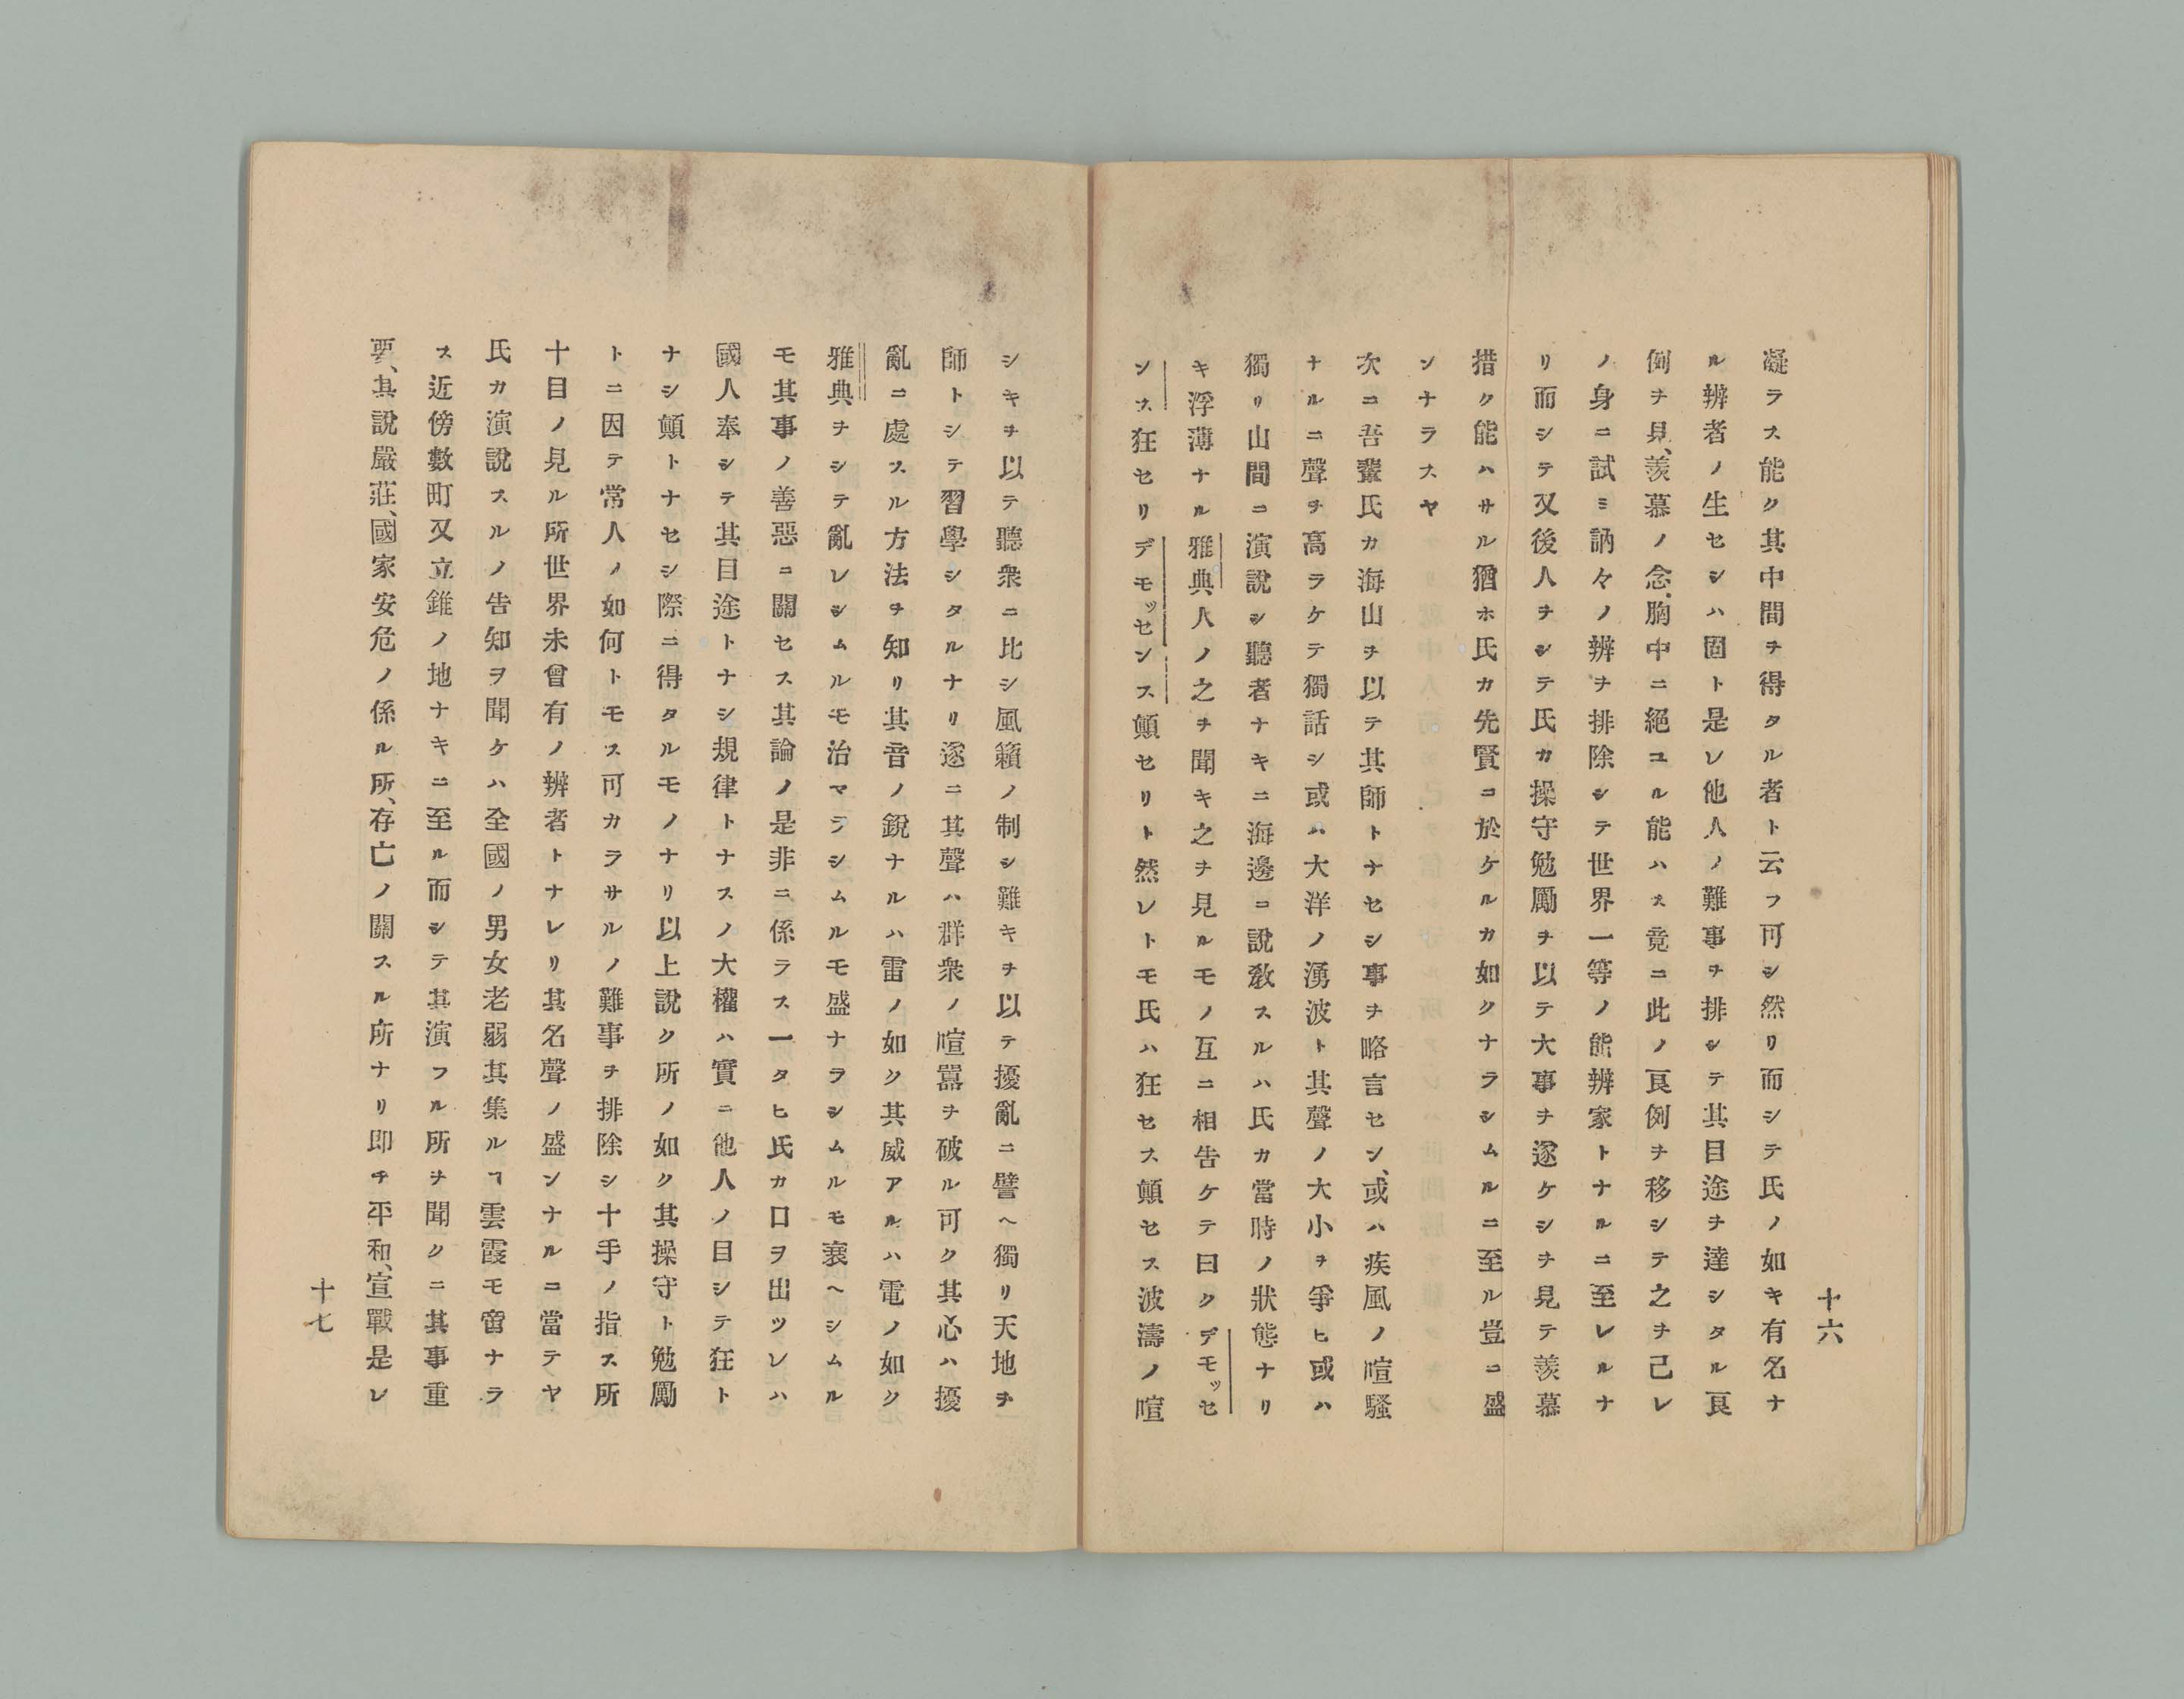 十六
凝ラス能ク其中間ヲ得タル者ト云フ可シ然リ而シテ氏ノ如キ有名ナ
ル辨者ノ生セシハ固ト是レ他人ノ難事ヲ排シテ其目途ヲ達シタル良
例ヲ見、羨慕ノ念、胸中ニ絕ユル能ハス竟ニ此ノ良例ヲ移シテ之ヲ己レ
ノ身ニ試ミ訥々ノ辨ヲ排除シテ世界一等ノ能辨家トナルニ至レルナ
リ而シテ又後人ヲシテ氏カ操守勉勵ヲ以テ大事ヲ遂ケシヲ見テ羨慕
措ク能ハサル猶ホ氏カ先賢ニ於ケルカ如クナラシムルニ至ル豈ニ盛
ンナラスヤ
次ニ吾輩氏カ海山ヲ以テ其師トナセシ事ヲ略言セン、或ハ疾風ノ喧騷
ナルニ聲ヲ高ラケテ獨話シ或ハ大洋ノ湧波ト其聲ノ大小ヲ爭ヒ或ハ
獨リ山間ニ演說シ聽者ナキニ海邊ニ說敎スルハ氏カ當時ノ狀態ナリ
キ浮薄ナル雅典人ノ之ヲ聞キ之ヲ見ルモノ互ニ相告ケテ曰クデモッセ
ンス狂セリデモッセンス顛セリト然レトモ氏ハ狂セス顛セス波濤ノ喧
シキヲ以テ聽衆ニ比シ風籟ノ制シ難キヲ以テ擾亂ニ譬ヘ獨リ天地ヲ
師トシテ習學シタルナリ遂ニ其聲ハ群衆ノ喧囂ヲ破ル可ク其心ハ擾
亂ニ處スル方法ヲ知リ其音ノ銳ナルハ雷ノ如ク其威アルハ電ノ如ク
雅典ヲシテ亂レシムルモ治マラシムルモ盛ナラシムルモ衰ヘシムル
モ其事ノ善惡ニ關セス其論ノ是非ニ係ラス一タヒ氏カ口ヲ出ツレハ
國人奉シテ其目途トナシ規律トナスノ大權ハ實ニ他人ノ目シテ狂ト
ナシ顛トナセシ際ニ得タルモノナリ以上說ク所ノ如ク其操守ト勉勵
トニ因テ常人ノ如何トモス可カラサルノ難事ヲ排除シ十手ノ指ス所
十目ノ見ル所世界未曾有ノ辨者トナレリ其名聲ノ盛ンナルコ當テヤ
氏カ演說スルノ告知ヲ聞ケハ全國ノ男女老弱其集ルヿ雲霞モ啻ナラ
ス近傍數町又立錐ノ地ナキニ至ル而シテ其演フル所ヲ聞クニ其事重
要、其說嚴莊、國家安危ノ係ル所、存亡ノ關スル所ナリ即チ平和、宣戰是レ
十七